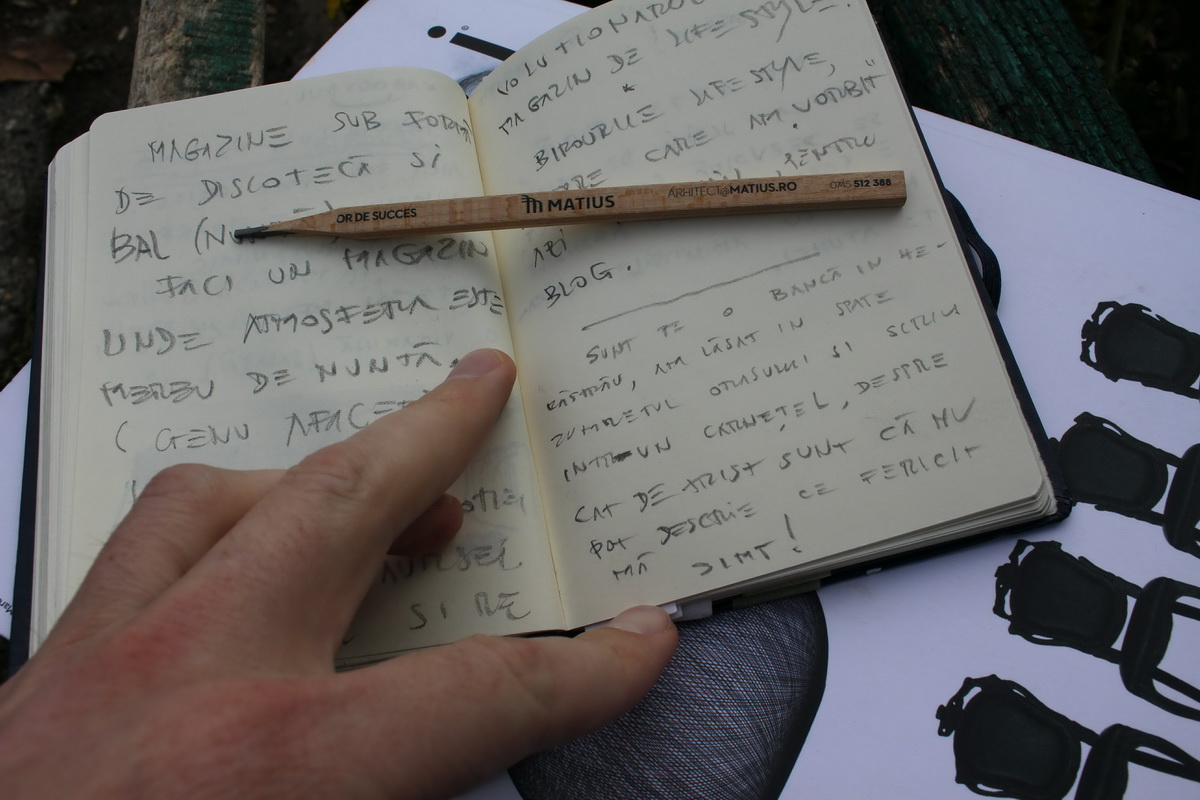 MAGAZINE SUB FORM
DE DISCOTECĂ SI
BAL
FACI UN MAGAZIN
UNDE ATMOSFERA ESTE
MEREU DE NUNTĂ.
( GENU AFACE
SI RE
VOLUTIONAR
MAGAZIN DE LIFE STYLE.
*
BIROURILE LIFESTYLE,
CARE AM VORBIT"
PENTRU
BLOG.
SUNT PE O BANCĂ IN HE-
RĂSTRĂU, AM LĂSAT IN SPATE
ZUMZETUL ORASULUI SI SCRIU
INTR-UN CARNEȚEL, DESPRE
CAT DE TRIST SUNT CĂ NU
POT DESCRIE CE FERICIT
MĂ SIMT!
OR DE SUCCES MATIUS ARHITECT@MATIUS.RO 0745 512 388